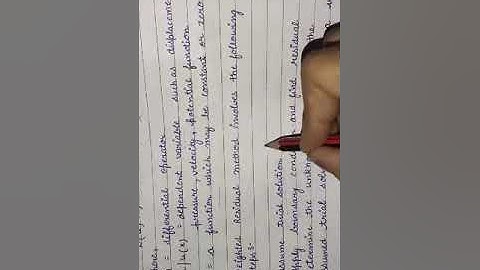 = differential operator
u(x) = dependent variable such as displacement
pressure, velocity, potential function
= a function which may be constant or zero
eighted Residual method involves the following
steps:
ssume trial solution
pply boundary and find residual
termine the the
ssumed trial